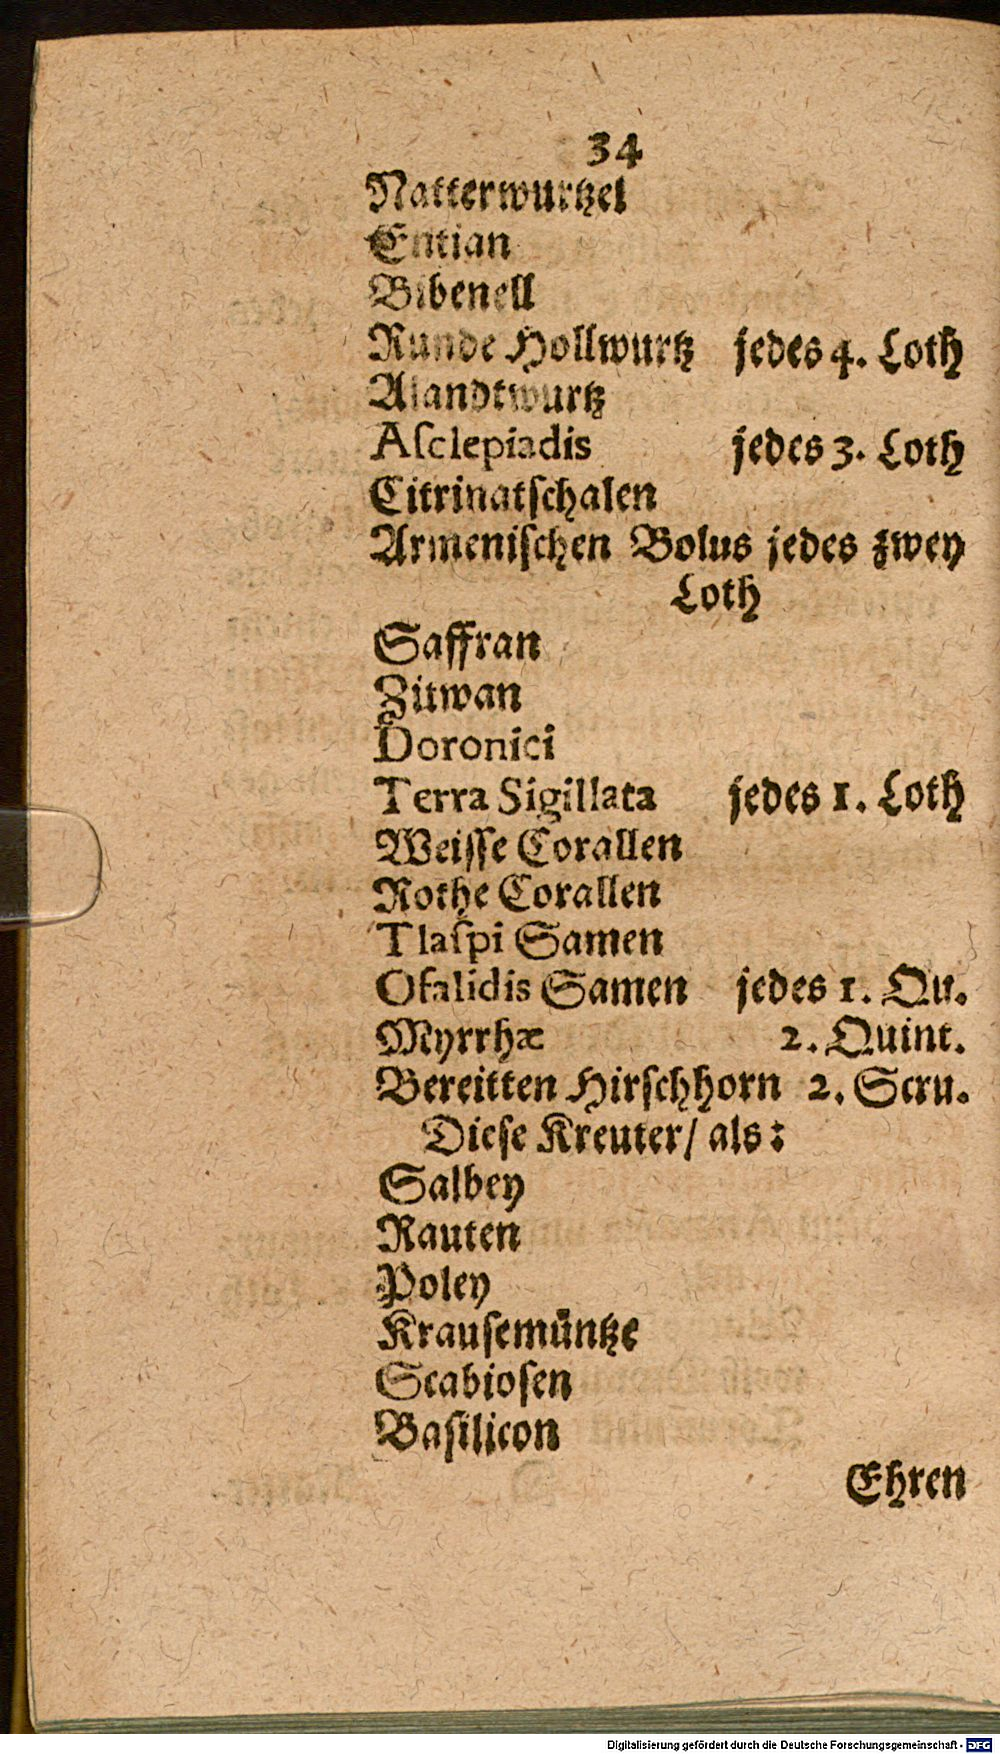 34
Natterwurtzel
Entian
Bibenell
Runde Hollwurtz jedes 4. Loth
Alandtwurtz
Aſclepiadis jedes 3. Loth
Citrinatſchalen
Armeniſchen Bolus jedes zwey
Loth
Saffran
Zitwan
Doronici
Terra Sigillata jedes 1. Loth
Weiſſe Corallen
Rothe Corallen
Tlaſpi Samen
Oſalidis Samen jedes 1. Qu.
Myrrhæ 2. Quint.
Bereitten Hirſchhorn 2. Scru.
Dieſe Kreuter/ als:
Salbey
Rauten
Poley
Krauſemüntze
Scabioſen
Baſilicon
Ehren
Digitalisierung gefördert durch die Deutsche Forschungsgemeinschaft - DFG